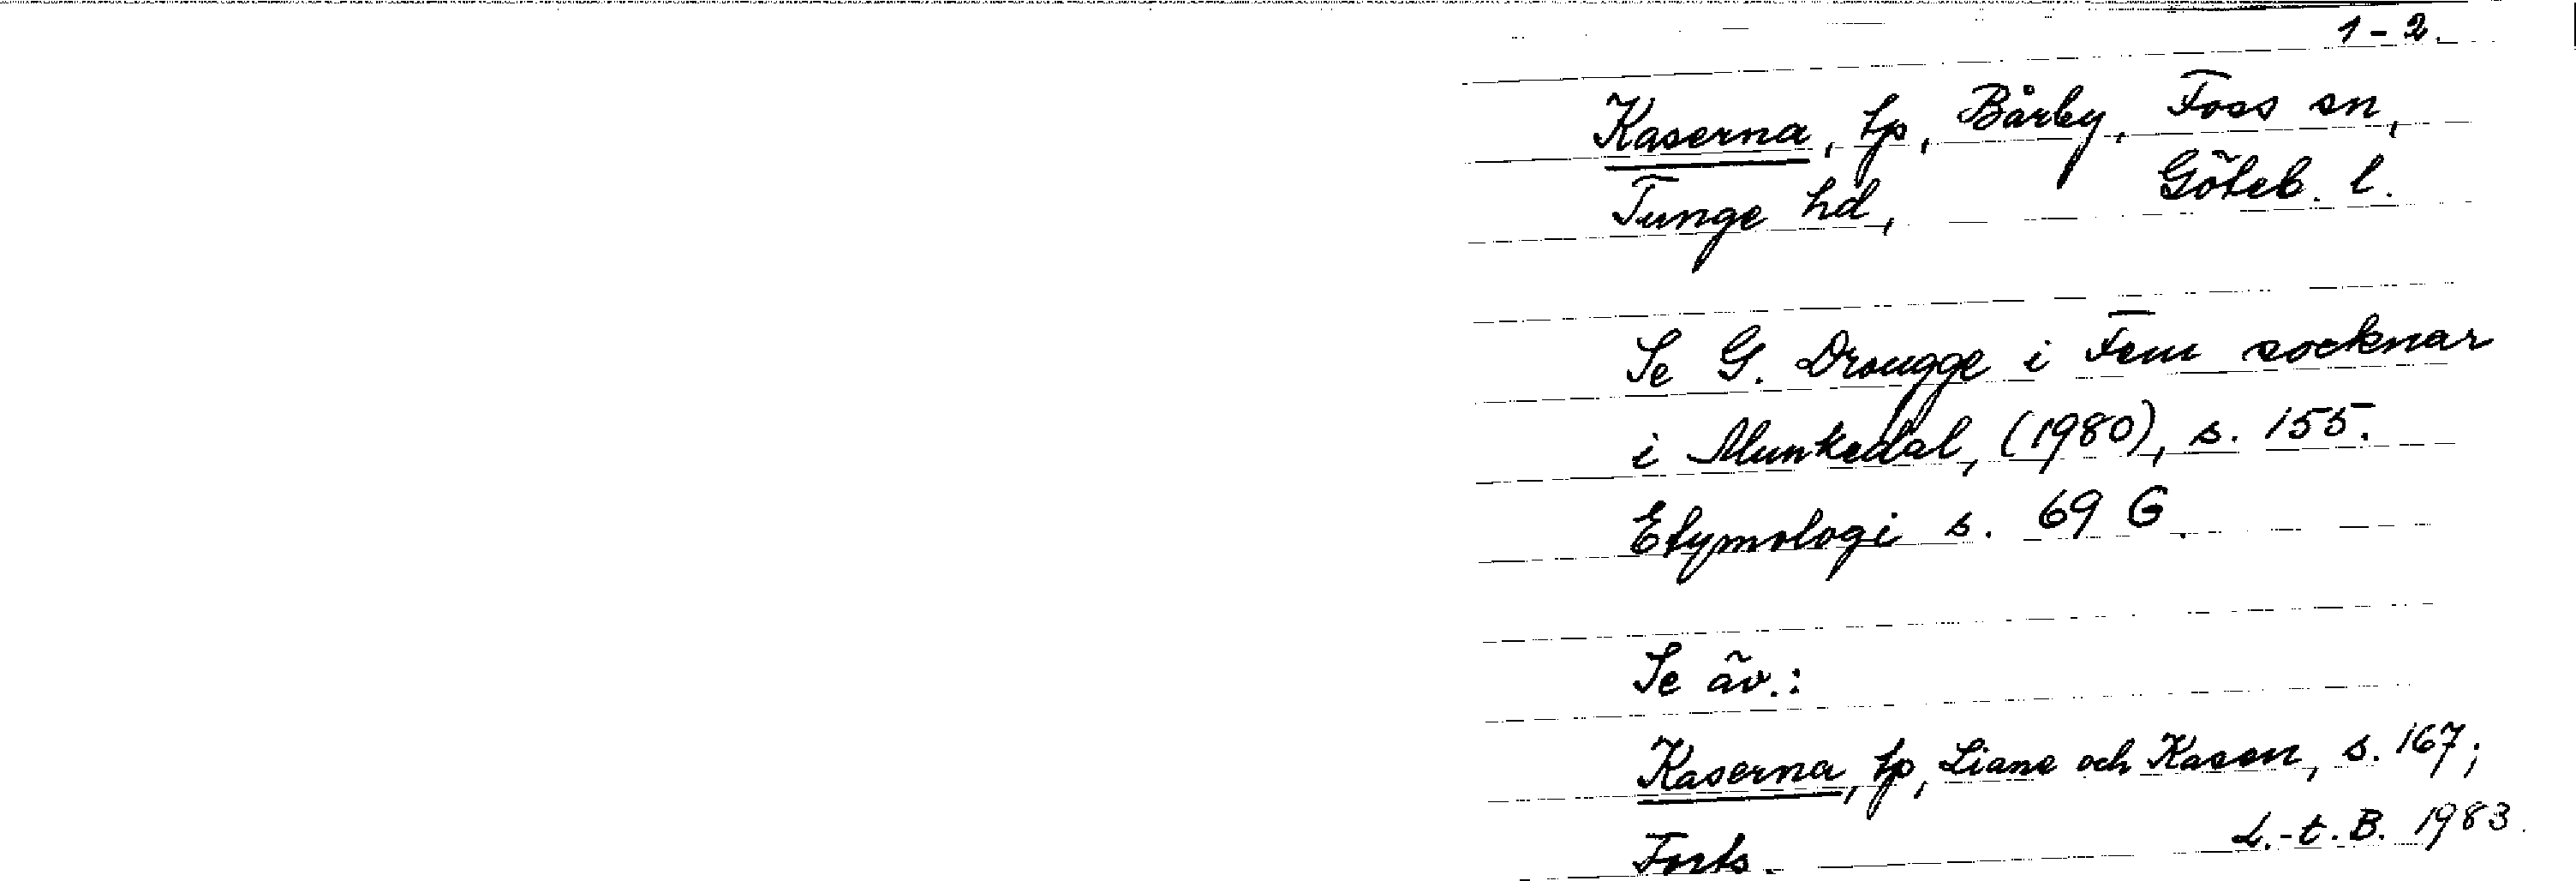 1-2.
Kaserna, tp, Bårby, Foss sn,
Tunge hd, Göteb. l.
Se G. Drougge i Fem socknar
i Munkedal, (1980), s. 155.
Etymologi s. 69 G.
Se äv.:
Kaserna, tp, Liane och Kasen, s. 167;
Forts. L.-t. B. 1983.